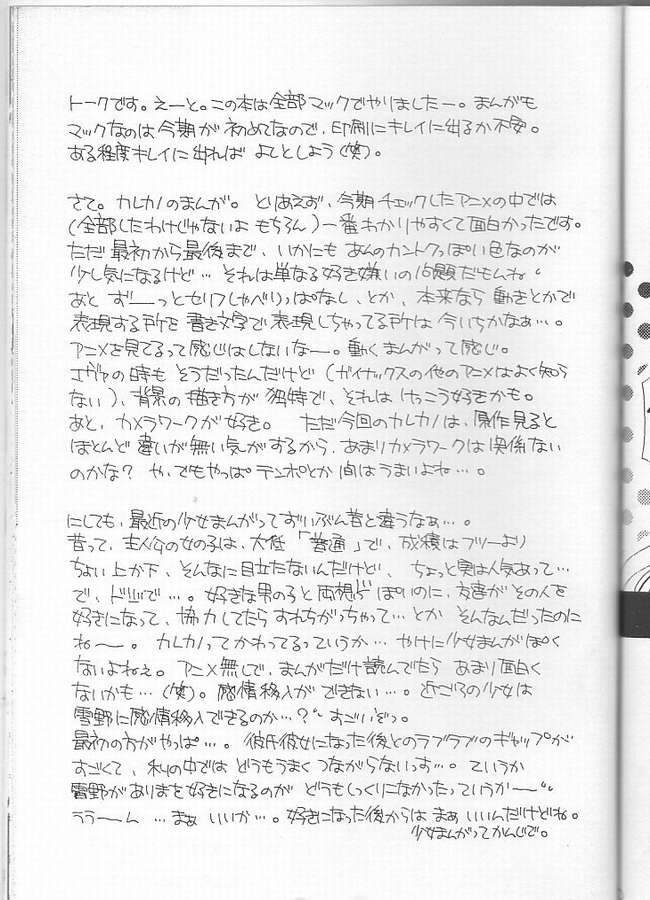 トークです。えーと。この本は全部マックでやりましたー。まんがも
マックなのは今期が初めてなので、印刷にキレイに出るか不安。
ある程度キレイに出れば よしとしよう(笑)。
さて。カレカノのまんが。とりあえず、今期チェックしたアニメの中では
(全部したわけじゃないよ もちろん)一番わかりやすくて面白かったです。
ただ 最初から最後まで、いかにも あんのカントクっぽい色なのが
少し気になるけど… それは単なる好き嫌いの問題だもんね。
あと ずーーっとセリフしゃべりっぱなし、とか、本来なら 動きとかで
表現する所を 書き文字で表現しちゃってる所は 今いちかなぁ…。
アニメを見てるって感じはしないなー。動くまんがって感じ。
エヴァの時も そうだったんだけど(ガイナックスの他のアニメはよく知ら
ない)、背景の描き方が 独特で、それは けっこう好きかも。
あと、カメラワークが好き。 ただ今回のカレカノは、原作見ると
ほとんど違いが無い気がするから、あまりカメラワークは関係ない
のかな? や、でもやっぱ テンポとか 間はうまいよね…。
にしても、最近の少女まんがってずいぶん昔と違うなぁ…。
昔って、主人公の女の子は、大低「普通」で、成績はフツーより
ちょい上か下、そんなに目立たないんだけど、ちょっと実は人気あって…
で、ドジで…。好きな男の子と両想いっぽいのに、友達がその人を
好きになって、協力してたら すれちがっちゃって…とか そんなんだったのに
ね〜。 カレカノってかわってるっていうか… やけに少女まんがぽく
ないよねぇ。アニメ無しで、まんがだけ読んでたら あまり面白く
ないかも…(笑)。感情移入が できない…。近ごろの少女は
雪野に感情移入できるのか…?" すごいぞっ。
最初の方がやっぱ…。彼氏彼女になった後とのラブラブのギャップが
すごくて、私の中では どうもうまく つながらないっす…。ていうか
雪野がありまを好きになるのが どうもしっくりこなかったっていうか〜"
うう〜ん …まぁ いいか…。好きになった後からは まぁ いいんだけどね。
少女まんがってかんじで。